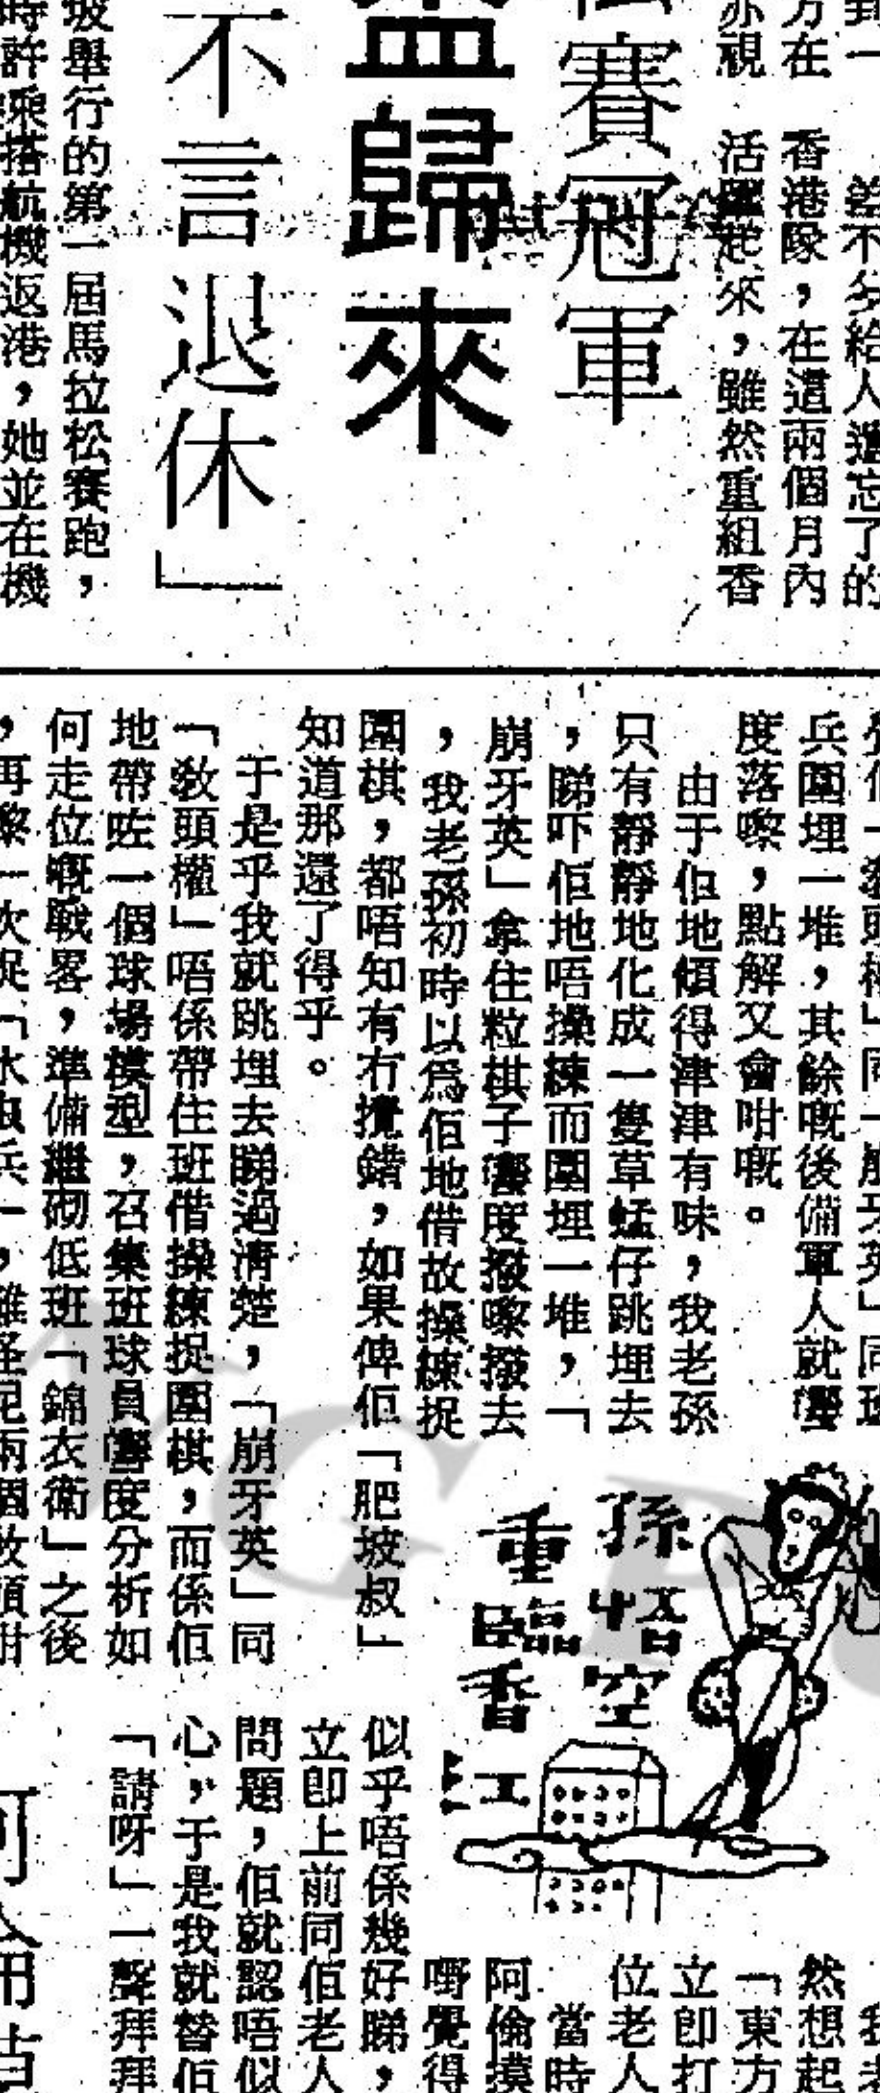 善不多給人遺忘了的
方在　香港隊，在這兩個月內
亦視　活躍起來，雖然重組香
賽冠軍
歸來
不言退休」
坡舉行的第一屆馬拉松賽跑，
時許乘搭航機返港，她並在機
兵圍埋一堆，其餘嘅後備軍人就嚮
度落嚟，點解又會咁嘅。
由于佢地傾得津津有味，我老孫
只有靜靜地化成一隻草蜢仔跳埋去
，睇吓佢地唔操練而圍埋一堆，「
崩牙英」拿住粒棋子嚮度撥嚟撥去
，我老孫初時以爲佢地借故操練捉
圍棋，都唔知有冇攪錯，如果俾佢「肥坡叔」
知道那還了得乎。
于是乎我就跳埋去睇過清楚，「崩牙英」同
「教頭權」唔係帶住班借操練捉圍棋，而係佢
地帶咗一個球場模型，召集班球員嚮度分析如
何走位嘅戰畧，準備繼砌低班「錦衣衛」之後
孫悟空
重臨香江
然想起
「東方
立即打
位老人
當時
阿倫摸
嘢覺得
似乎唔係幾好睇，
立即上前同佢老人
問題，佢就認唔似
心，于是我就替佢
「請呀」一聲拜拜